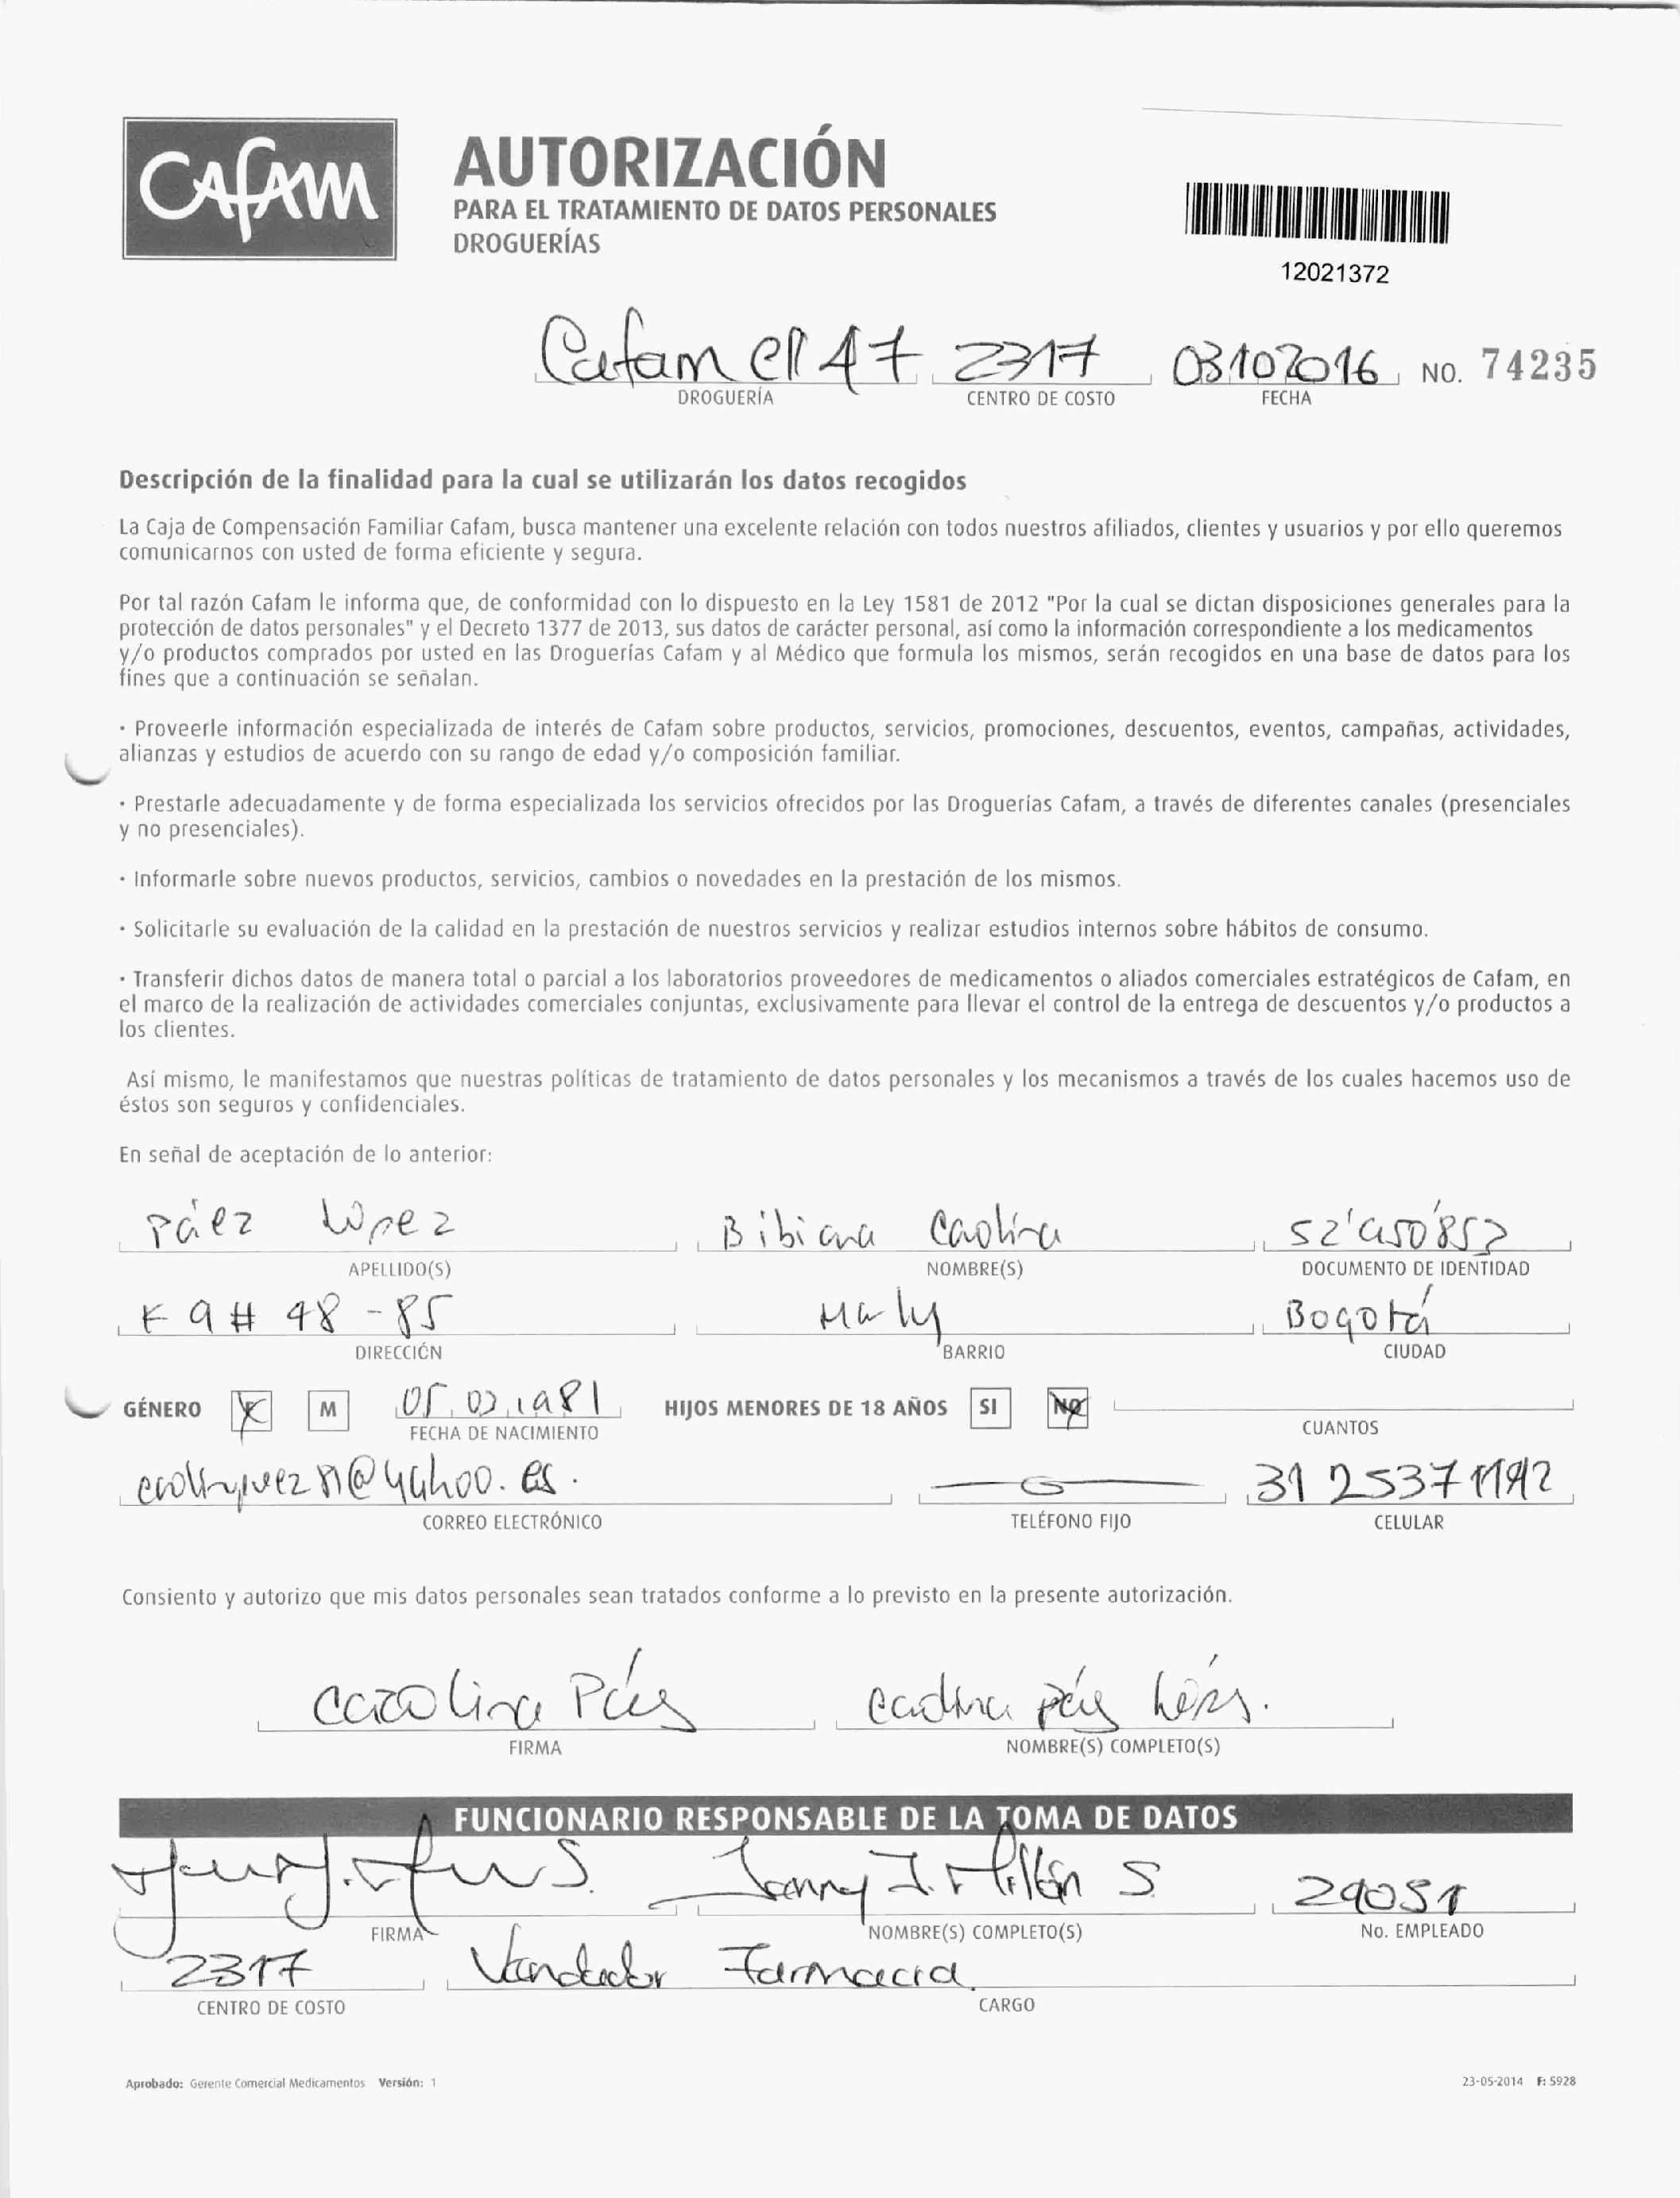 CAFAM
AUTORIZACIÓN
PARA EL TRATAMIENTO DE DATOS PERSONALES
DROGUERÍAS
12021372
Cafam Cll 47 2317 03102016 NO. 74235
DROGUERÍA CENTRO DE COSTO FECHA
Descripción de la finalidad para la cual se utilizarán los datos recogidos
La Caja de Compensación Familiar Cafam, busca mantener una excelente relación con todos nuestros afiliados, clientes y usuarios y por ello queremos
comunicarnos con usted de forma eficiente y segura.
Por tal razón Cafam le informa que, de conformidad con lo dispuesto en la Ley 1581 de 2012 "Por la cual se dictan disposiciones generales para la
protección de datos personales" y el Decreto 1377 de 2013, sus datos de carácter personal, así como la información correspondiente a los medicamentos
y/o productos comprados por usted en las Droguerías Cafam y al Médico que formula los mismos, serán recogidos en una base de datos para los
fines que a continuación se señalan.
· Proveerle información especializada de interés de Cafam sobre productos, servicios, promociones, descuentos, eventos, campañas, actividades,
alianzas y estudios de acuerdo con su rango de edad y/o composición familiar.
· Prestarle adecuadamente y de forma especializada los servicios ofrecidos por las Droguerías Cafam, a través de diferentes canales (presenciales
y no presenciales).
· Informarle sobre nuevos productos, servicios, cambios o novedades en la prestación de los mismos.
· Solicitarle su evaluación de la calidad en la prestación de nuestros servicios y realizar estudios internos sobre hábitos de consumo.
· Transferir dichos datos de manera total o parcial a los laboratorios proveedores de medicamentos o aliados comerciales estratégicos de Cafam, en
el marco de la realización de actividades comerciales conjuntas, exclusivamente para llevar el control de la entrega de descuentos y/o productos a
los clientes.
Así mismo, le manifestamos que nuestras políticas de tratamiento de datos personales y los mecanismos a través de los cuales hacemos uso de
éstos son seguros y confidenciales.
En señal de aceptación de lo anterior:
Páez López Bibiana Carolina 52'950852
APELLIDO(S) NOMBRE(S) DOCUMENTO DE IDENTIDAD
K 9 # 48 - 85 Marly Bogotá
DIRECCIÓN BARRIO CIUDAD
GÉNERO M 05.02.1981 HIJOS MENORES DE 18 AÑOS SI NO
FECHA DE NACIMIENTO CUANTOS
@yahoo.es. 3125371192
CORREO ELECTRÓNICO TELÉFONO FIJO CELULAR
Consiento y autorizo que mis datos personales sean tratados conforme a lo previsto en la presente autorización.
Carolina Páez Carolina Páez López.
FIRMA NOMBRE(S) COMPLETO(S)
FUNCIONARIO RESPONSABLE DE LA TOMA DE DATOS
Jenny J. Millán S 29051
FIRMA NOMBRE(S) COMPLETO(S) No. EMPLEADO
2317 Vendedor Farmacia
CENTRO DE COSTO CARGO
Aprobado: Gerente Comercial Medicamentos Versión: 1 23-05-2014 F: 5928